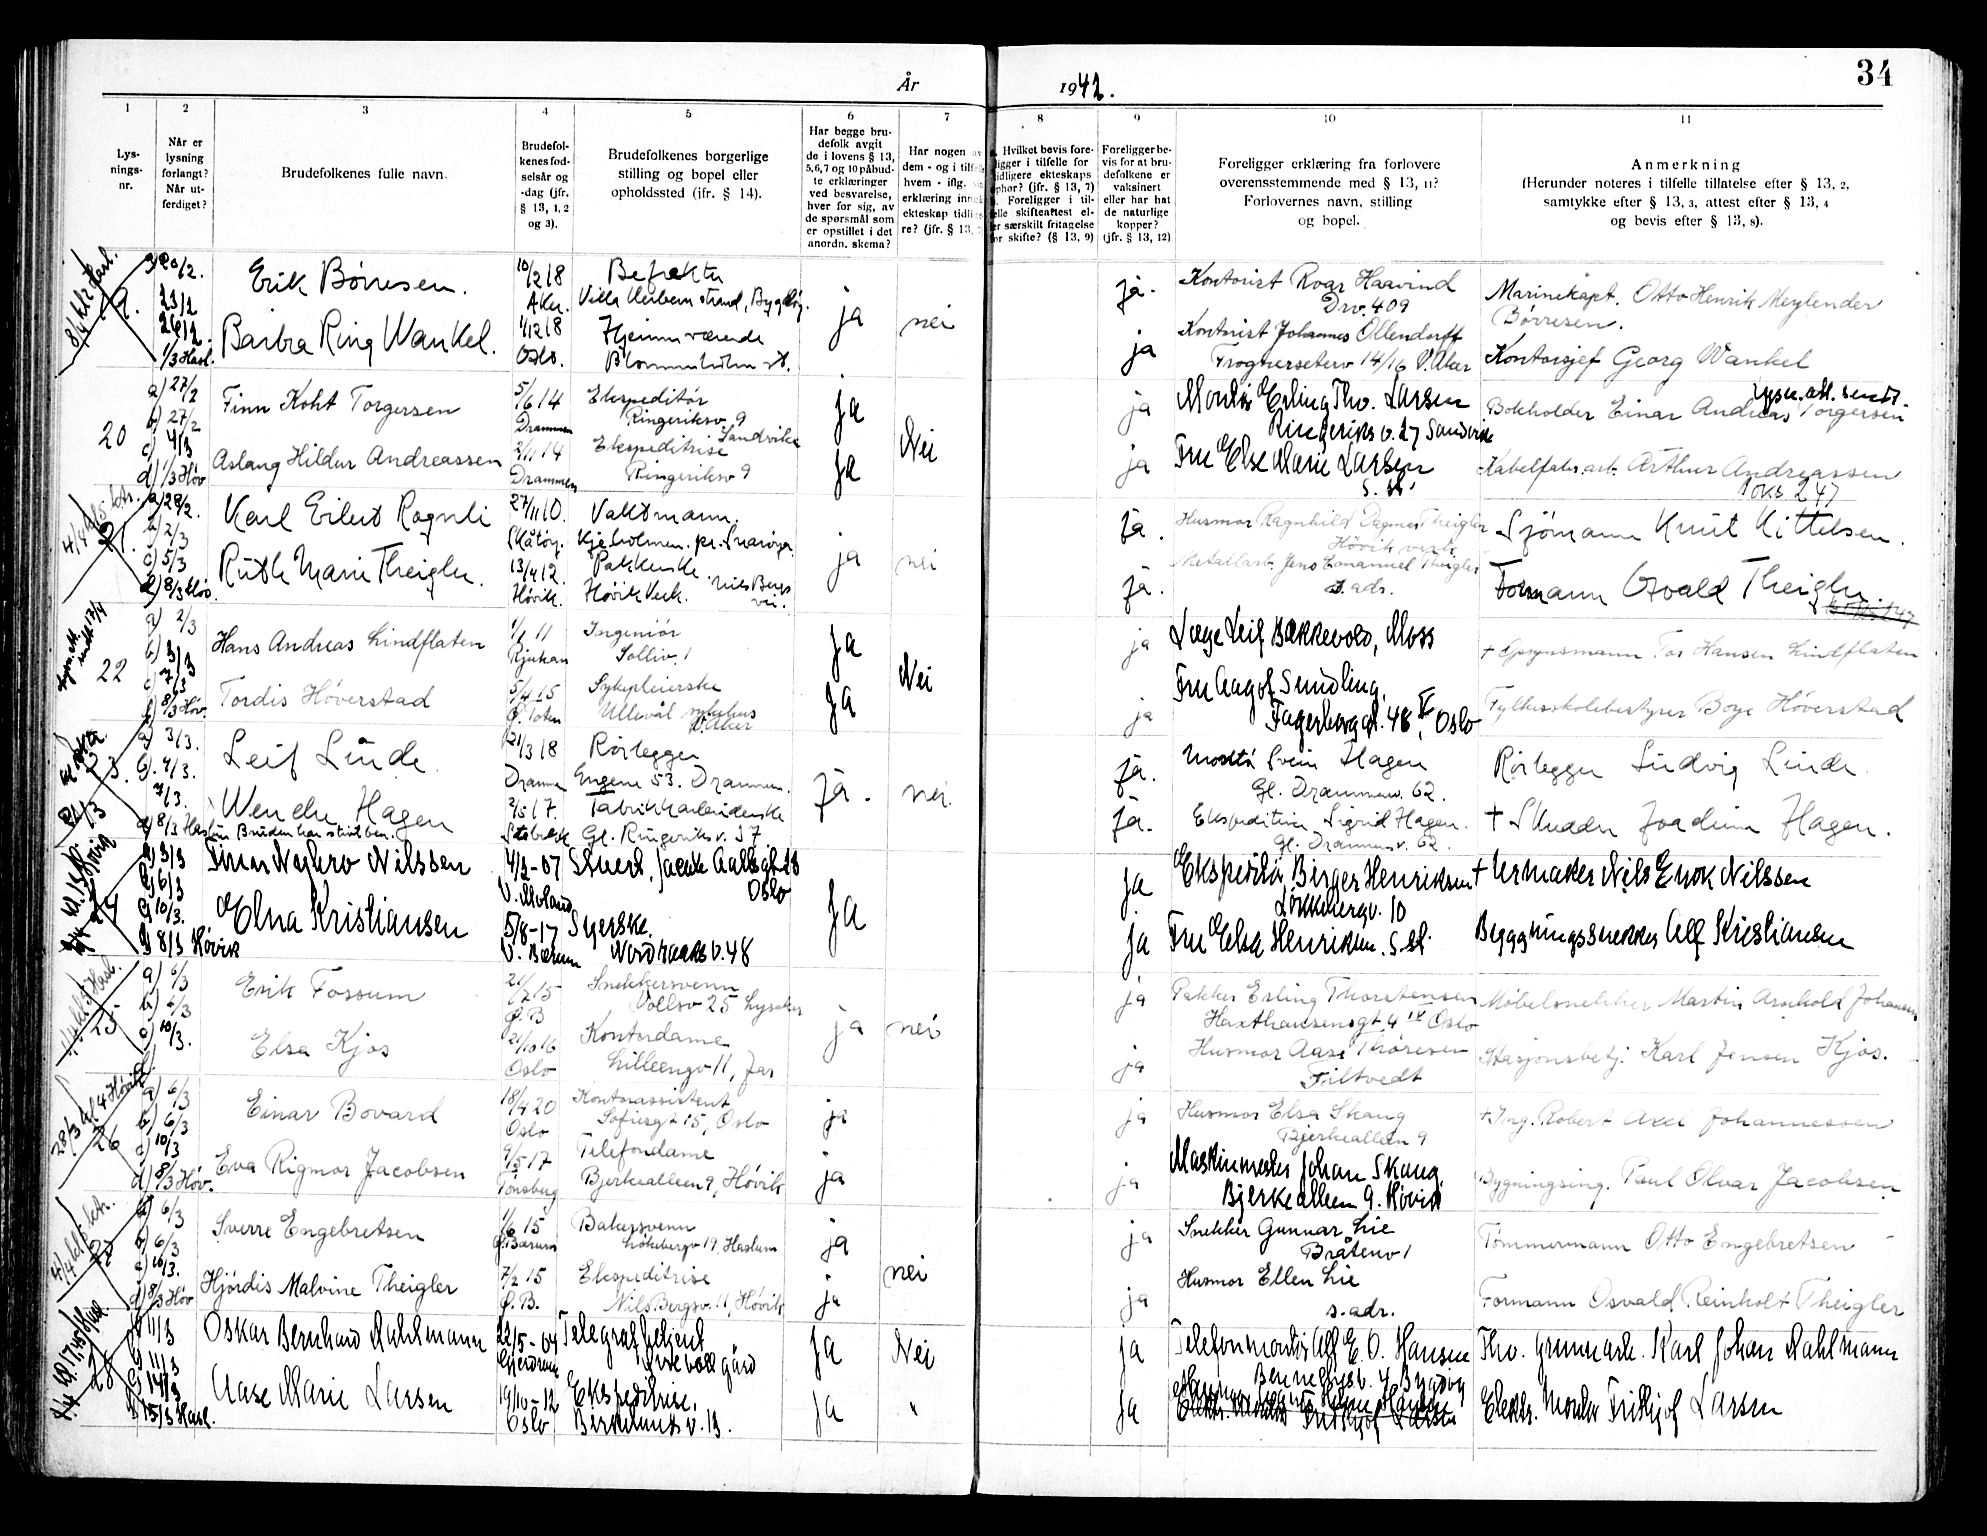 År 1942.
34
1
2
3
4
5
6
7
8
9
10
11
Lys-
nings-
nr.
Når er
lysning
forlangt?
Når ut-
ferdiget?
Brudefolkenes fulle navn.
Brudefol-
kenes fød-
selsår og
-dag (jfr.
§ 13, 1, 2
og 3).
Brudefolkenes borgerlige
stilling og bopel eller
opholdssted (jfr. § 14).
Har begge bru-
defolk avgit
de i lovens § 13,
5,6,7 og 10 påbud-
te erklæringer
ved besvarelse,
hver for sig, av
de spørsmål som
er opstillet i det
anordn. skema?
Har nogen av
dem - og i tilfelle
hvem - iflg.
erklæring inn
ekteskap tidlig
re? (jfr. § 13,
Hvilket bevis fore-
ligger i tilfelle for
tidligere ekteskaps
ophør? (jfr. § 13, 7)
Foreligger i til-
felle skifteattest el-
ler særskilt fritagelse
for skifte? (§ 13, 9)
Foreligger be-
vis for at bru-
defolkene er
vaksinert
eller har hat
de naturlige
kopper?
(jfr. § 13, 12)
Foreligger erklæring fra forlovere
overensstemmende med § 13, 11?
Forlovernes navn, stilling
og bopel.
Anmerkning
(Herunder noteres i tilfelle tillatelse efter § 13, 2,
samtykke efter § 13, 3, attest efter § 13, 4
og bevis efter § 13, 8).
20/2.
Erik Børresen.
10/2 18
ja
nei
ja.
Kontorist Roar Haavind
Drv. 409
Marinekapt. Otto Henrik Meylender
Børresen.
26/2.
1/3 Hasl.
Barbra Ring Wankel.
Oslo.
Hjemmeværende
Blommenholm st.
ja
Kontorist Johannes Ollendorff
14/16 V. Aker
Kontorsjef Georg Wankel
20
a) 27/2
b) 27/2
c) 4/3
d) 1/3 Høv
Finn Koht Torgersen
5/6 14
Drammen
Ekspeditør
Ringeriksv. 9
Sandvika
Ja
Nei
ja
Montør Erling Thv. Larsen
Ringeriks v. 27 Sandvika
Bokholder Einar Andreas Torgersen
Aslaug Hildur Andreassen
2/11 14
Drammen
Ekspeditrise
Ringeriksv 9
Ja
ja
Fru Else Marie Larsen
s. st.
Kabelfabr. arb. Arthur Andreassen
a) 28/2.
b) 2/3
c) 5/3
d) 8/3 Høv.
Karl Eilert Rognli
27/11 10.
Skåtøy.
Vaktmann.
Kjeholmen. pr. Snarøya
ja
nei
ja.
Husmor Ragnhild Dagmar Theigler
Høvik verk
Sjømann Knut Kittelsen.
Ruth Marie Theigler.
13/4 12.
Høvik.
Pakkerske. Nils Bergs
Høvik Verk. vei.
ja.
Metallarb. Jens Emanuel Theigler
s. adr.
Formann Osvald Theigler
22
a) 2/3
c) 7/3
8/3 Høv.
Hans Andreas Lindflaten
Rjukan
Ingeniør
Solliv. 1
Ja
Nei
ja
Læge Leif Bakkevold, Moss
+ Opsynsmann Tor Hansen Lindflaten
Tordis Høverstad
5/4 15
Ø. Toten
Sykepleierske
Ullevål sykehus
V. Aker
Ja
ja
Fru Aagot Sundling.
Fagerborg gt. 48 V, Oslo
Fylkesskolebestyrer Boye Høverstad
a) 3/3.
b) 4/3.
7/3.
d) 8/3 Haslum
Leif Linde.
21/3 18
Drammen
Rørlegger
Engene 53. Drammen.
ja.
nei.
ja.
Montør Svein Hagen
Gl. Drammensv. 62.
Rørlegger Ludvig Linde.
Wenche Hagen
Bruden har stivt ben.
2/5 17.
Stabekk
Fabrikkarbeiderske
Gl. Ringeriks v. 57
ja.
Ekspeditrise Sigrid Hagen.
Gl. Drammens v. 62.
+ Skredder Joachim Hagen.
a) 3/3
b) 6/3
c) 10/3.
d) 8/3 Høvik
Nilssen
4/2-07
Oslo
Ja
ja
Ekspeditør Birger Henriksen
Løkkebergv. 10
+ Urmaker Nils Enok Nilssen
Elna Kristiansen
5/8-17
V. Bærum
Syerske.
Nordraaks v. 48
ja
Fru Elsa Henriksen. s. st.
Byggningssnekker Alf Kristiansen
25
a) 6/3
b) 6/3
c) 10/3.
Erik Fossum
Ø. B
Snekkersvenn
Vollsv 25 Lysaker
ja
nei
ja
Pakker Erling Thorstensen
Haxthausensgt 4 IV Oslo
Møbelsnekker Martin Arnhold Johansen
Elsa Kjos
21/10 16
Oslo
Kontordame
Lilleengv 11, Jar
ja
Husmor Aase Thoresen
Filtvedt
Stasjonsbetj. Karl Jensen Kjos.
28/3 kl 4 Høvik
26
a) 6/3
b) 6/3
c) 10/3
d) 8/3 Høv.
Einar Bovard
18/4 20
Oslo
Kontorassistent
Sofiesgt 15, Oslo
ja
ja
Husmor Elsa Skaug
Bjerkealleen 9
+ Ing. Robert Axel Johannessen
Eva Rigmor Jacobsen
9/5 17
Tønsberg
Telefondame
Bjerkealleen 9, Høvik
ja
ja
Maskinmester Johan Skaug.
Bjerkealleen 9. Høvik
Bygningsing. Paul Olvar Jacobsen
27
a) 6/3
b) 6/3
c) 10/3.
d) 8/3 Høv
Sverre Engebretsen
1/6 15
Ø. Bærum
Bakersvenn
Løkebergv 19, Haslum
ja
nei
ja
Snekker Gunnar Lie
Bråtenv 1
Tømmermann Otto Engebretsen
Hjørdis Malvine Theigler
7/2 15
Ø. B.
Ekspeditrise
Nils Bergsv. 11, Høvik
ja
ja
Husmor Ellen Lie
s. adr.
Formann Osvald Reinholt Theigler
28
11/3
11/3
14/3
15/3 Hasl.
Oskar Bernhard Dahlmann
22/5-04
Gjerdrum
Telegrafbetjent
Ja
Nei
ja
Telefonmontør Alf E. O. Hansen
Bygdøy
Thv. Grunnarb. Karl Johan Dahlmann
Aase Marie Larsen
19/10-12
Oslo
Ekspeditrise.
Berkelunds v. 13.
Ja
"
ja
Elektr. Montør Fridtjof Larsen
Elektr. Montør Fridtjof Larsen